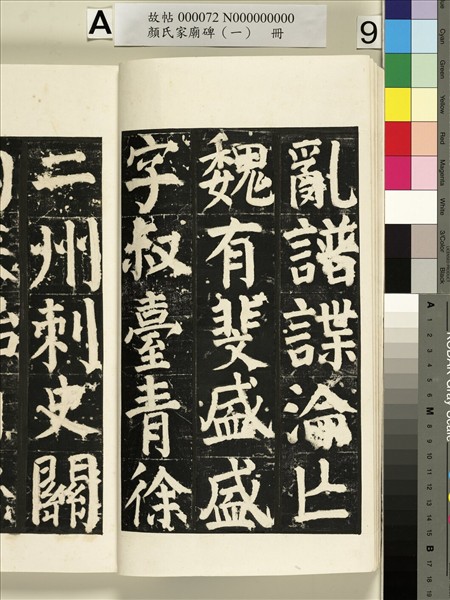 A
故帖 000072 N000000000
顏氏家廟碑（一） 冊
9
亂譜諜淪亡
魏有斐盛盛
字叔臺青徐
二州刺史關
Cyan
Green
Yellow
Red
Magenta
White
3/Color
Black
A 1 2 3 4 5 6 M 8 9 10 11 12 13 14 15 B 17 18 19